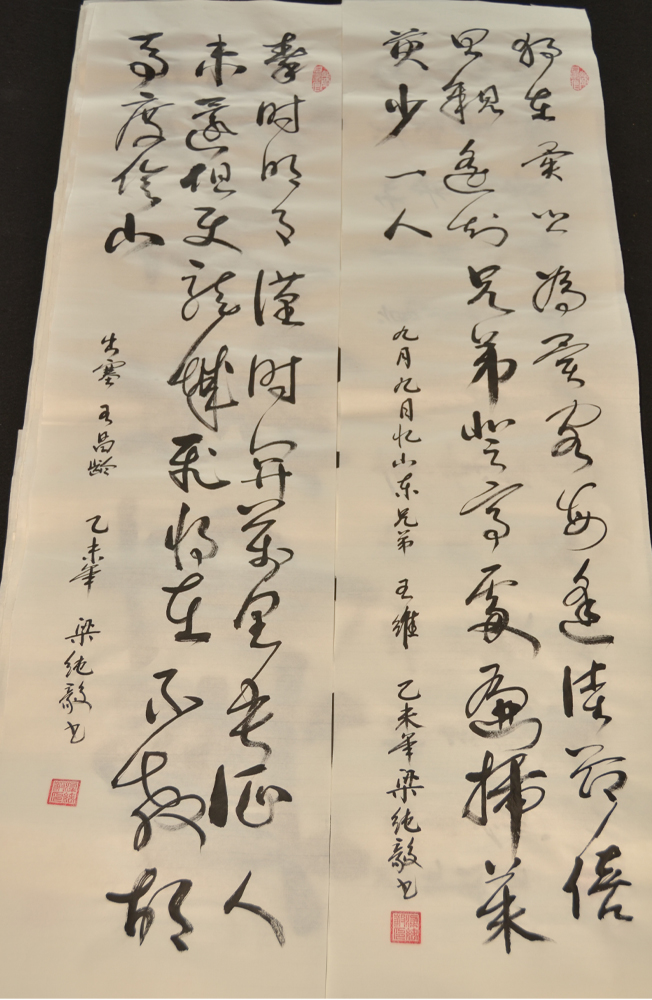 独在異乡為異客每逢佳節倍
思親遙知兄弟登高處遍插茱
萸少一人
九月九日忆山东兄弟 王維 乙未年梁純毅书
秦时明月漢时関萬里长征人
未還但使龍城飛将在不教胡
马度陰山
出塞 王昌龄 乙未年 梁純毅书